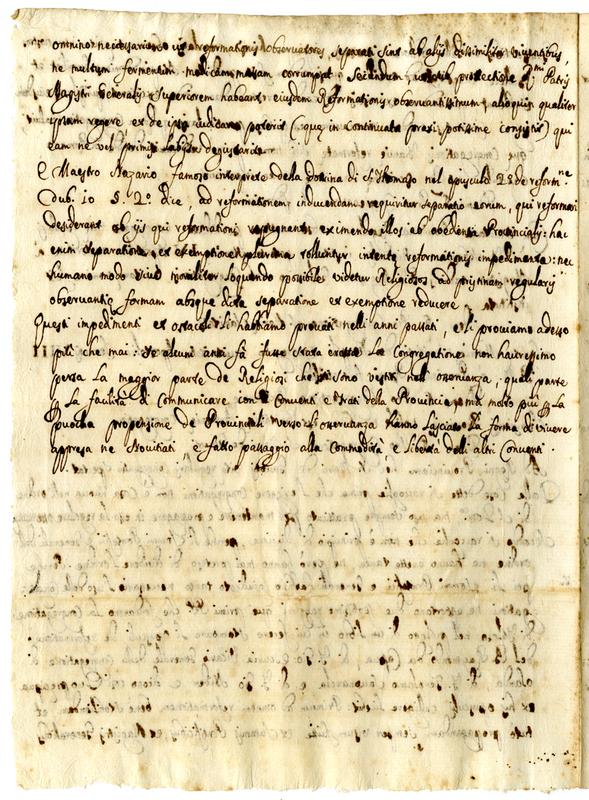 omnino necessarium ut reformationis observatores separati sint ab alijs dissimiliter viventibus,
ne multum fermentum modicam massam corrumpat; sub protectione Patris
Magistri Generalis superiorem habeant, eiusdem Reformationis observantissimum, alioquin qualiter
ipsam regere ex de ipsa iudicare poterit (que in continuata praxi potissime consistit) qui
eam ne vel primis labijs degustavit.
E Maestro Nazario famoso interprete della dottrina di S. Thomaso nel opusculo 23 de reform.ne
dub. 10 §. 2.° dice, ad reformationem inducendam requiritur separatio eorum, qui reformari
desiderant ab ijs qui reformationi repugnant, eximendo illos ab obedientia Provincialis: hac
enim separatione, ex exemptione plurima tolluntur intente reformationis impedimenta: nec
humano modo sive moraliter loquendo possibile videtur Religiosos, ad pristinam regularis
observantie formam absque dicta separatione ex exemptione reducere.
Questi impedimenti ex ostacoli li habbiamo provati nelli anni passati, e li proviamo adesso
più che mai: se alcuni anni fà fusse stata eretta La Congregatione non havressimo
persa La maggior parte de Religiosi che si sono vestiti nell osservanza, quali parte
p La facilità di Communicare con Conventi e frati della Provincia, ma molto più p La
puocha propensione de Provinciali verso l'osservanza hanno Lasciato La forma di vivere
appresa ne Novitiati, e fatto passaggio alla Commodità e Libertà delli altri Conventi.